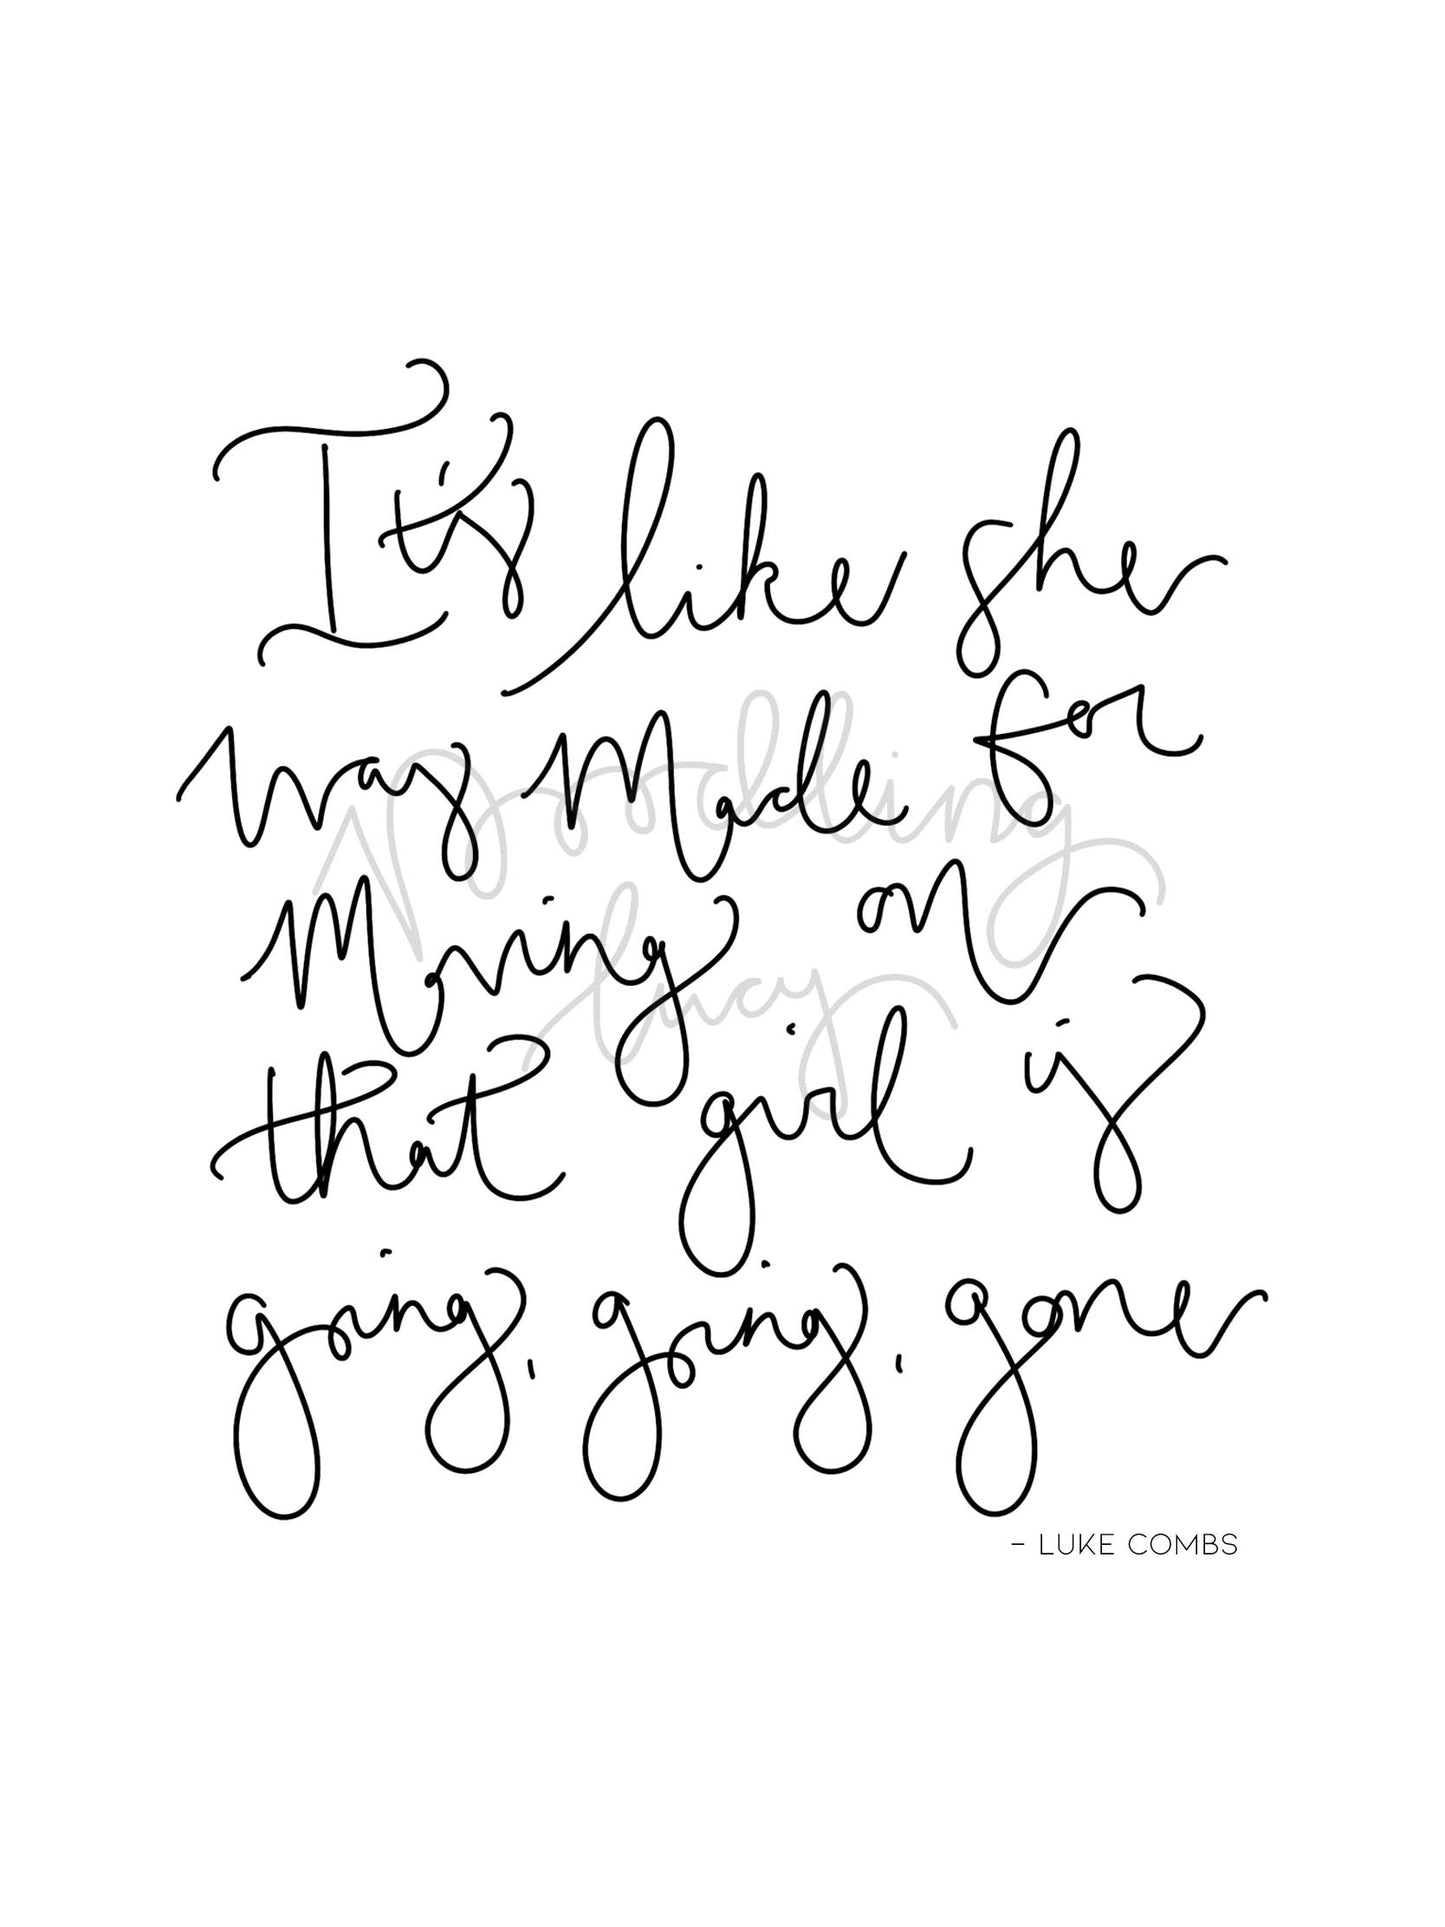 It's like she
was made for
Noodling
moving on
lucy
that girl is
going, going, gone
- LUKE COMBS